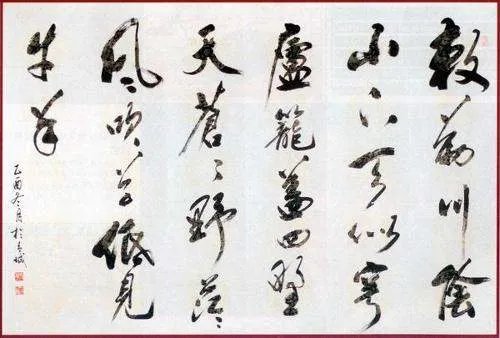 敕勒川陰
山下天似穹
廬籠蓋四野
天蒼々野茫々
風吹草低見
牛羊
乙酉冬月於青城